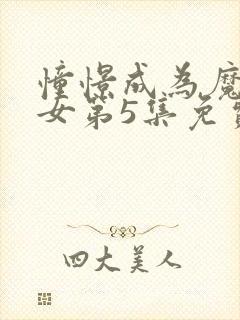 憧憬成为魔
女第5集免费
四大美人